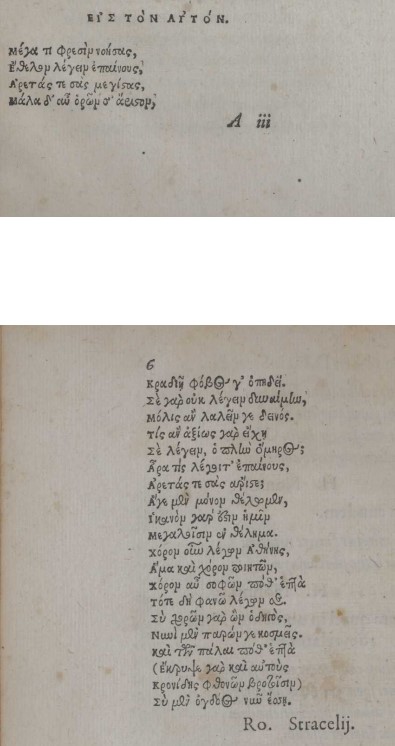 ΕΙΣ ΤΟΝ ΑΥΤΟΝ.
Μέγα τι φρεσὶν νοήσας,
Ἔθελον λέγειν ἐπαίνους,
Ἀρετάς τε σὰς μεγίστας,
Μάλα δ' αὖ ὁρῶν σ' ἄριστον,
A iii
6
Κραδίῃ φόβος γ' ὀπηδεῖ.
Σὲ γὰρ οὐκ λέγειν δυναίμην,
Μόλις ἂν λαλεῖν γε δεινός.
Τίς ἂν ἀξίως γὰρ ἔχῃ
Σὲ λέγειν, ὁ πλὴν ὅμηρος;
Ἆρα τίς λέγοιτ' ἐπαίνους,
Ἀρετάς τε σὰς
Ἄγε μὲν μόνον θέλωμεν,
Ἱκανὸν γὰρ ἐστιν ἡμῖν
Μεγάλοισιν ἐν θέλημα.
χόρον οὖν λέγων Ἀθήνης,
Ἅμα καὶ χόρον ποιητῶν,
χόρον αὖ σοφῶν ποθ' ἑπτὰ
Τότε δὴ φανῶ λέγων σε.
Σὺ χορῶν γὰρ ὢν ὁδηγός,
Νυνὶ μὲν παρών γε κοσμεῖς.
καὶ τῶν πάλαι ποθ' ἑπτὰ
(ἔκρυψε γὰρ καὶ αὐτοὺς
Κρονίδης φθονῶν βροτοῖσιν)
Σὺ μὲν ὄγδοος νυν ἔσσῃ.
Ro. Stracelij.